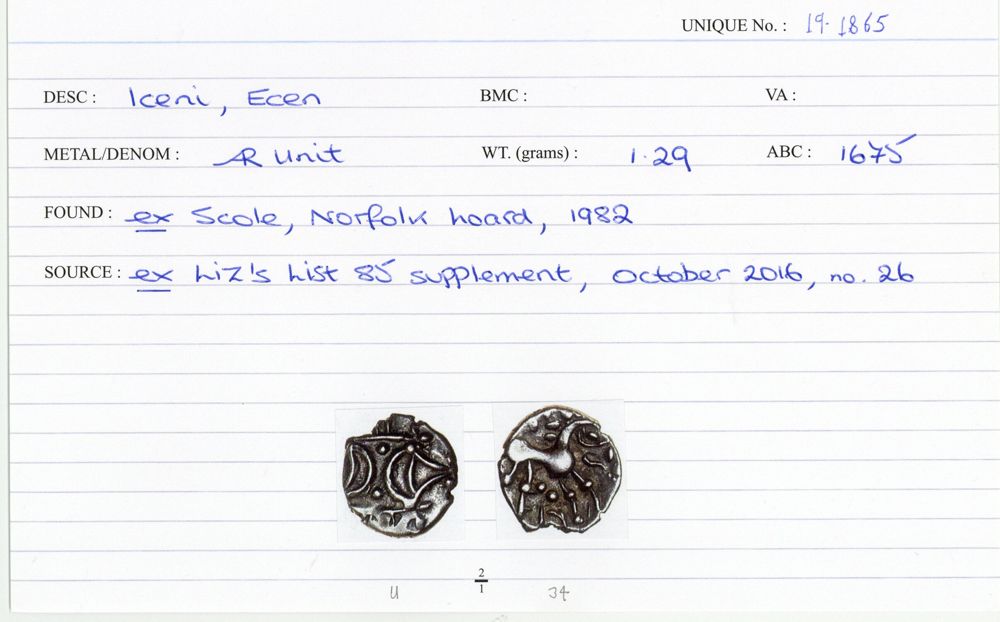 UNIQUE No. : 19.1865
DESC : Iceni, Ecen BMC : VA :
METAL/DENOM : AR Unit WT. (grams) : 1.29 ABC : 1675
FOUND : ex Scole, Norfolk hoard, 1982
SOURCE : ex Liz's List 85 supplement, October 2016, no. 26
2
1
U 34